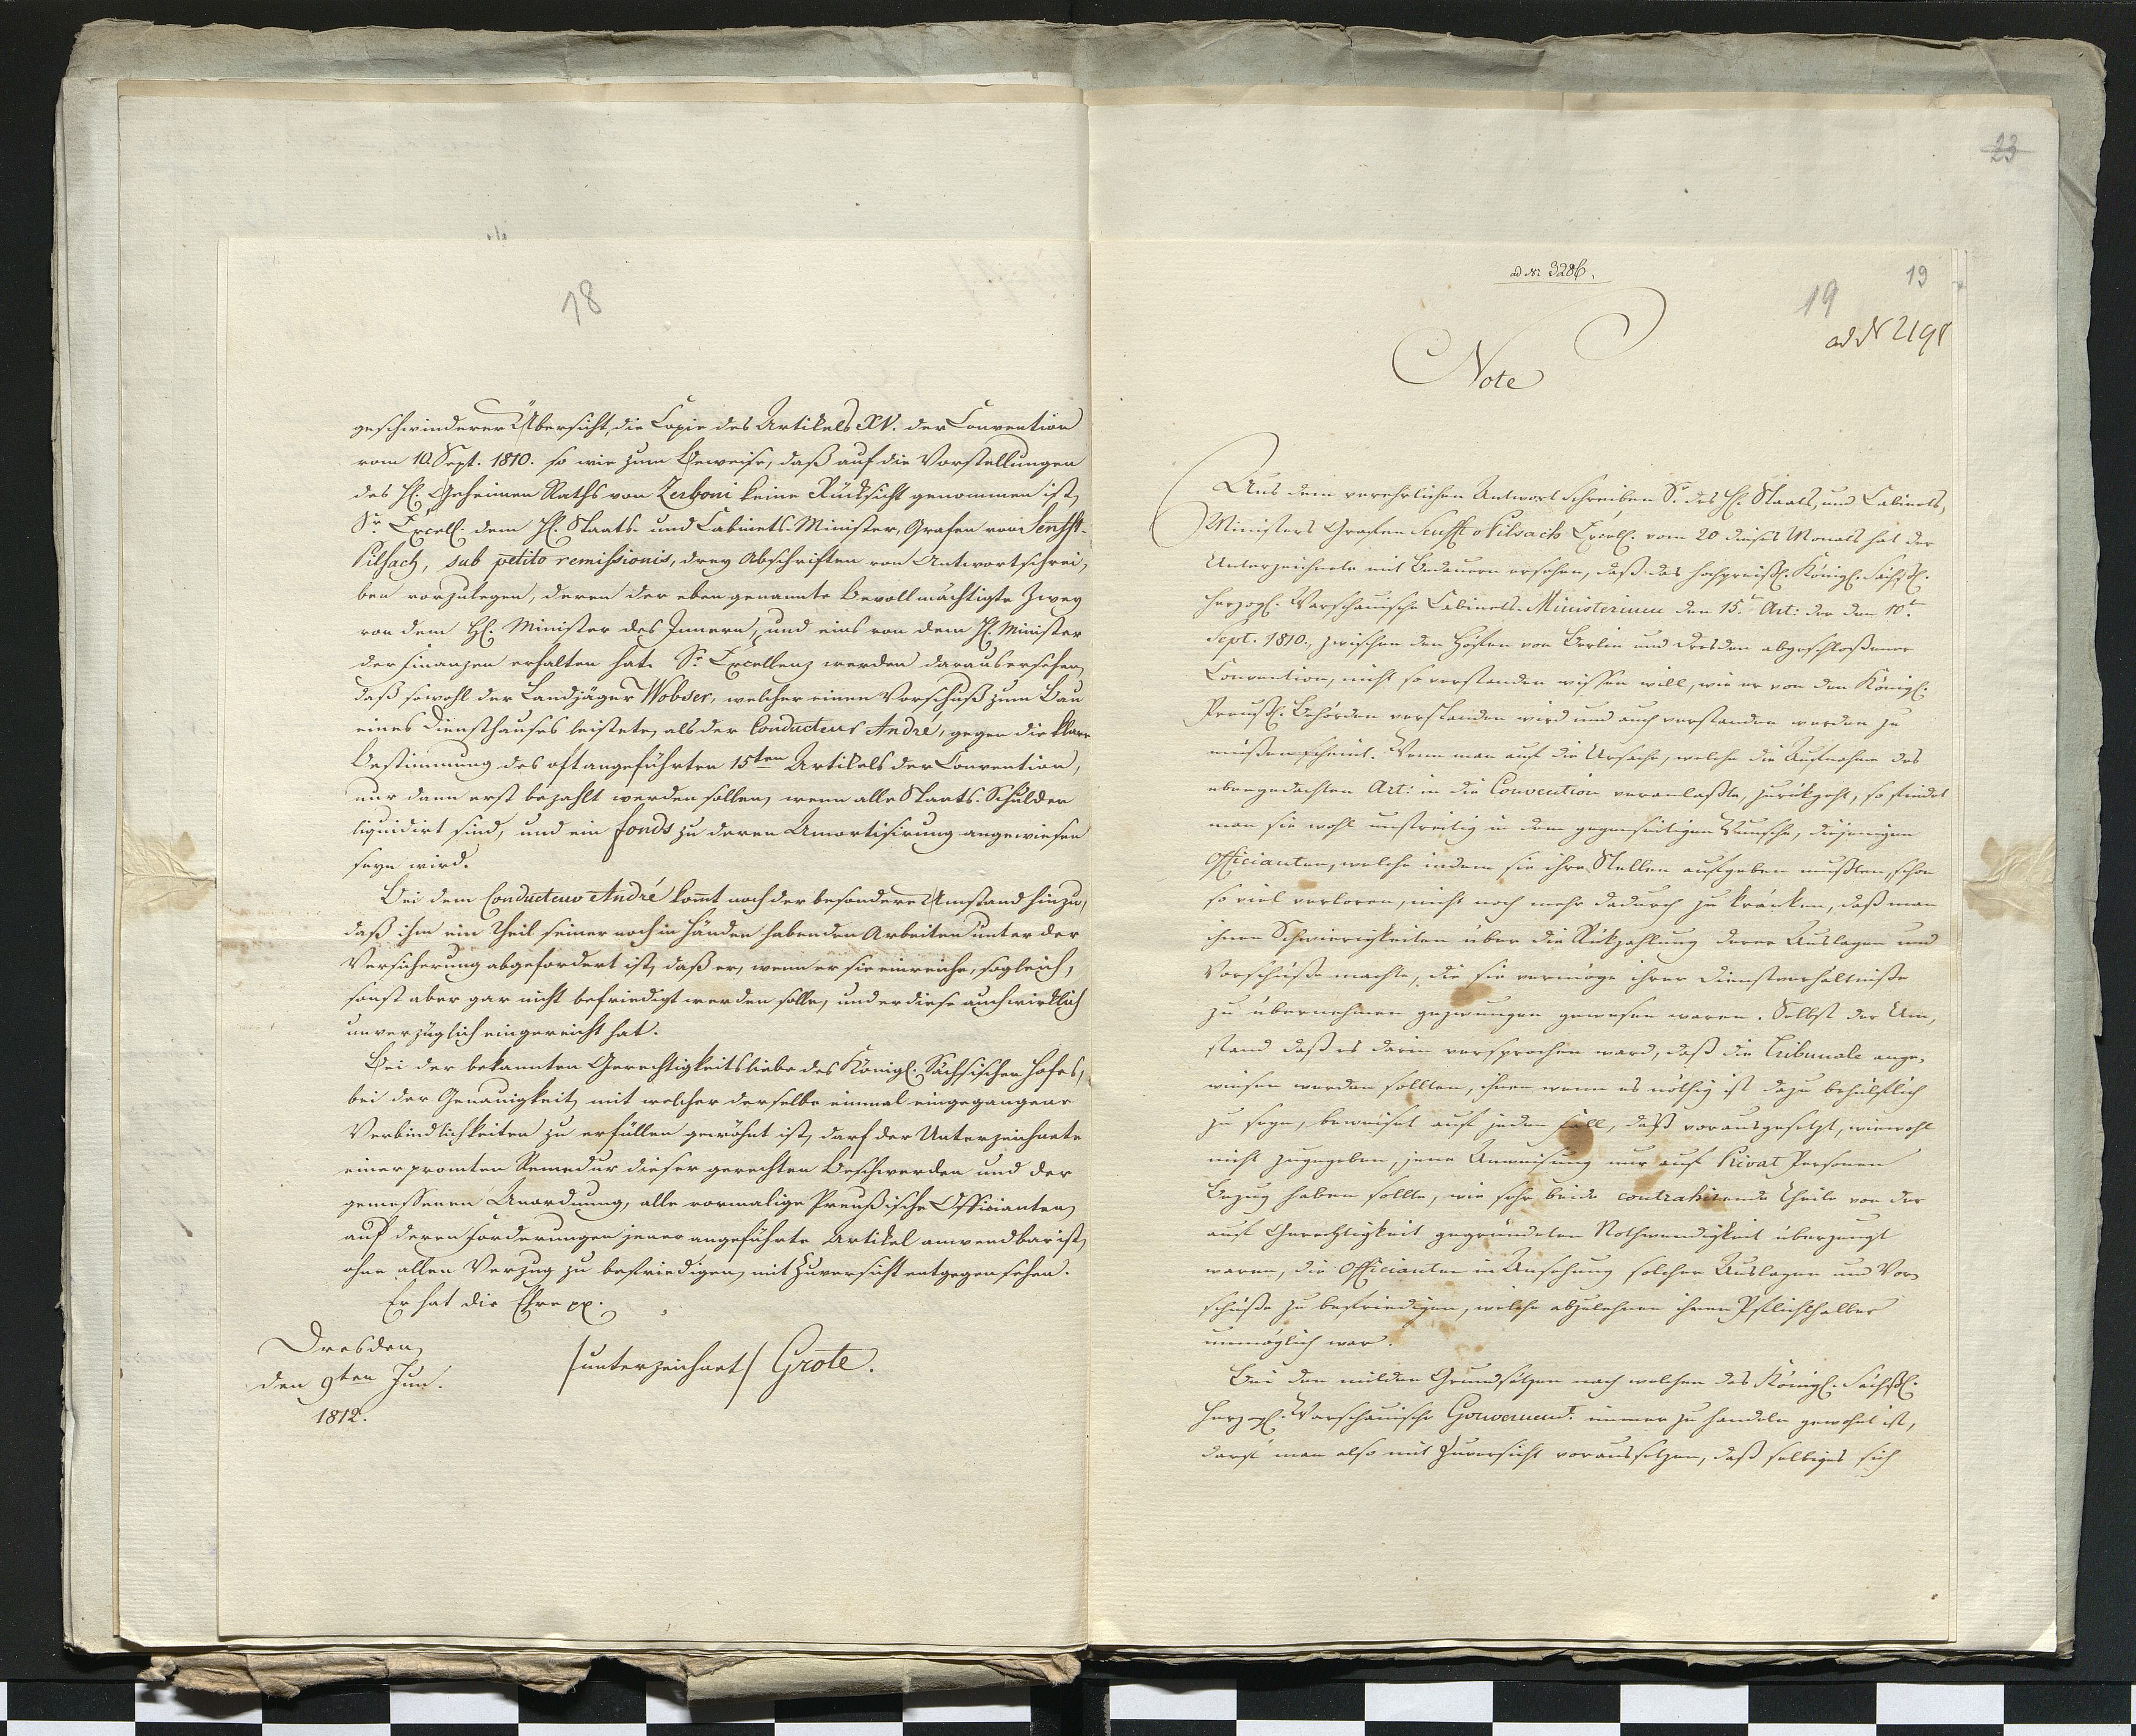 18
geschwinderer Übersicht, die Copie des Artikels XV. der Convention
vom 10. Sept. 1810. so wie zum Beweise, daß auf die Vorstellungen
des H. Geheimen Raths von Zerboni keine Rücksicht genommen ist,
Sr. Excell. dem H. Staats- und Cabinets-Minister, Grafen von Senfft-
Pilsach, sub petito remissionis, drey Abschriften von Antwortschrei,
ben vorzulegen, deren der eben genannte Bevollmächtigte zwey
von dem H. Minister des Innern, und eins von dem H. Minister
der Finanzen erhalten hat. Sr. Excellenz werden daraus ersehen,
daß sowohl der Landjäger Wobser, welcher einen Vorschuß zum Bau
eines Diensthauses leistete, als der Conducteur André, gegen die klare
Bestimmung des oft angeführten 15ten Artikels der Convention,
nur dann erst bezahlt werden sollen, wenn alle Staats-Schulden
liquidirt sind, und ein fonds zu deren Amortisirung angewiesen
seyn wird.
Bei dem Conducteur André komt noch der besondere Umstand hinzu,
daß ihm ein Theil seiner noch in Händen habenden Arbeiten unter der
Versicherung abgefordert ist, daß er, wenn er sie einreiche, sogleich,
sonst aber gar nicht befriedigt werden solle, und er diese auch wirklich
unverzüglich eingereicht hat.
Bei der bekannten Gerechtigkeitsliebe des Königl. Sächsischen Hofes,
bei der Genauigkeit, mit welcher derselbe einmal eingegangene
Verbindlichkeiten zu erfüllen gewöhnt ist, darf der Unterzeichnete
einer promten Remedur dieser gerechten Beschwerden und der
gemessenen Anordnung, alle vormalige Preußische Officianten,
auf deren Forderungen jener angeführte Artikel anwendbar ist,
ohne allen Verzug zu befriedigen, mit Zuversicht entgegen sehen.
Er hat die Ehre pp.
Dresden,
den 9ten Jun.
1812.
/unterzeichnet/ Grote.
23
ad No 3286.
19
19
ad N 2198
Note
Aus dem verehrlichen Antwort Schreiben Sr. des H. Staats, und Cabinets,
Ministers Grafen Senfft v Pilsach Excell. vom 20 dieses Monats hat der
Unterzeichnete mit Bedauern ersehen, daß das hochpreißl. Königl. Sächsl.
Herzogl. Warschauische Cabinets-Ministerium den 15.t Art: der den 10.t
Sept. 1810., zwischen den Höfen von Berlin und Dresden abgeschloßenen
Convention, nicht so verstanden wissen will, wie er von den Königl.
Preußl. Behörden verstanden wird und auch verstanden werden zu
müßen scheint. Wenn man auf die Ursache, welche die Aufnahme des
obengedachten Art: in die Convention veranlaßte, zurükgeht, so findet
man sie wohl unstreitig in dem gegenseitigen Wunsche, diejenigen
Officianten, welche indem sie ihre Stellen aufgeben mußten, schon
so viel verloren, nicht noch mehr dadurch zu kränken, daß man
ihnen Schwierigkeiten über die Rükzahlung derer Auslagen und
Vorschüße machte, die sie vermöge ihrer Dienstverhältniße
zu übernehmen gezwungen gewesen waren. Selbst der Um,
stand daß es darin versprochen ward, daß die Tribunale ange,
wiesen werden sollten, ihnen wenn es nöthig ist dazu behülflich
zu seyn, beweiset auf jeden Fall, daß vorausgesetzt, wiewohl
nicht zugegeben, jene Anweisung nur auf Privat Personen
Bezug haben sollte, wie sehr beide contrahirende Theile von der
auf Gerechtigkeit gegründeten Nothwendigkeit überzeugt
waren, die Officianten in Ansehung solcher Auslagen und Vor,
schüße zu befriedigen, welche abzulehnen ihnen Pflichthalber
unmöglich war.
Bei den milden Grundsätzen nach welchen das Königl. Sächßl.
Herzogl. Warschauische Gouvernemt. immer zu handeln gewohnt ist,
darf man also mit Zuversicht voraussetzen, daß selbiges sich